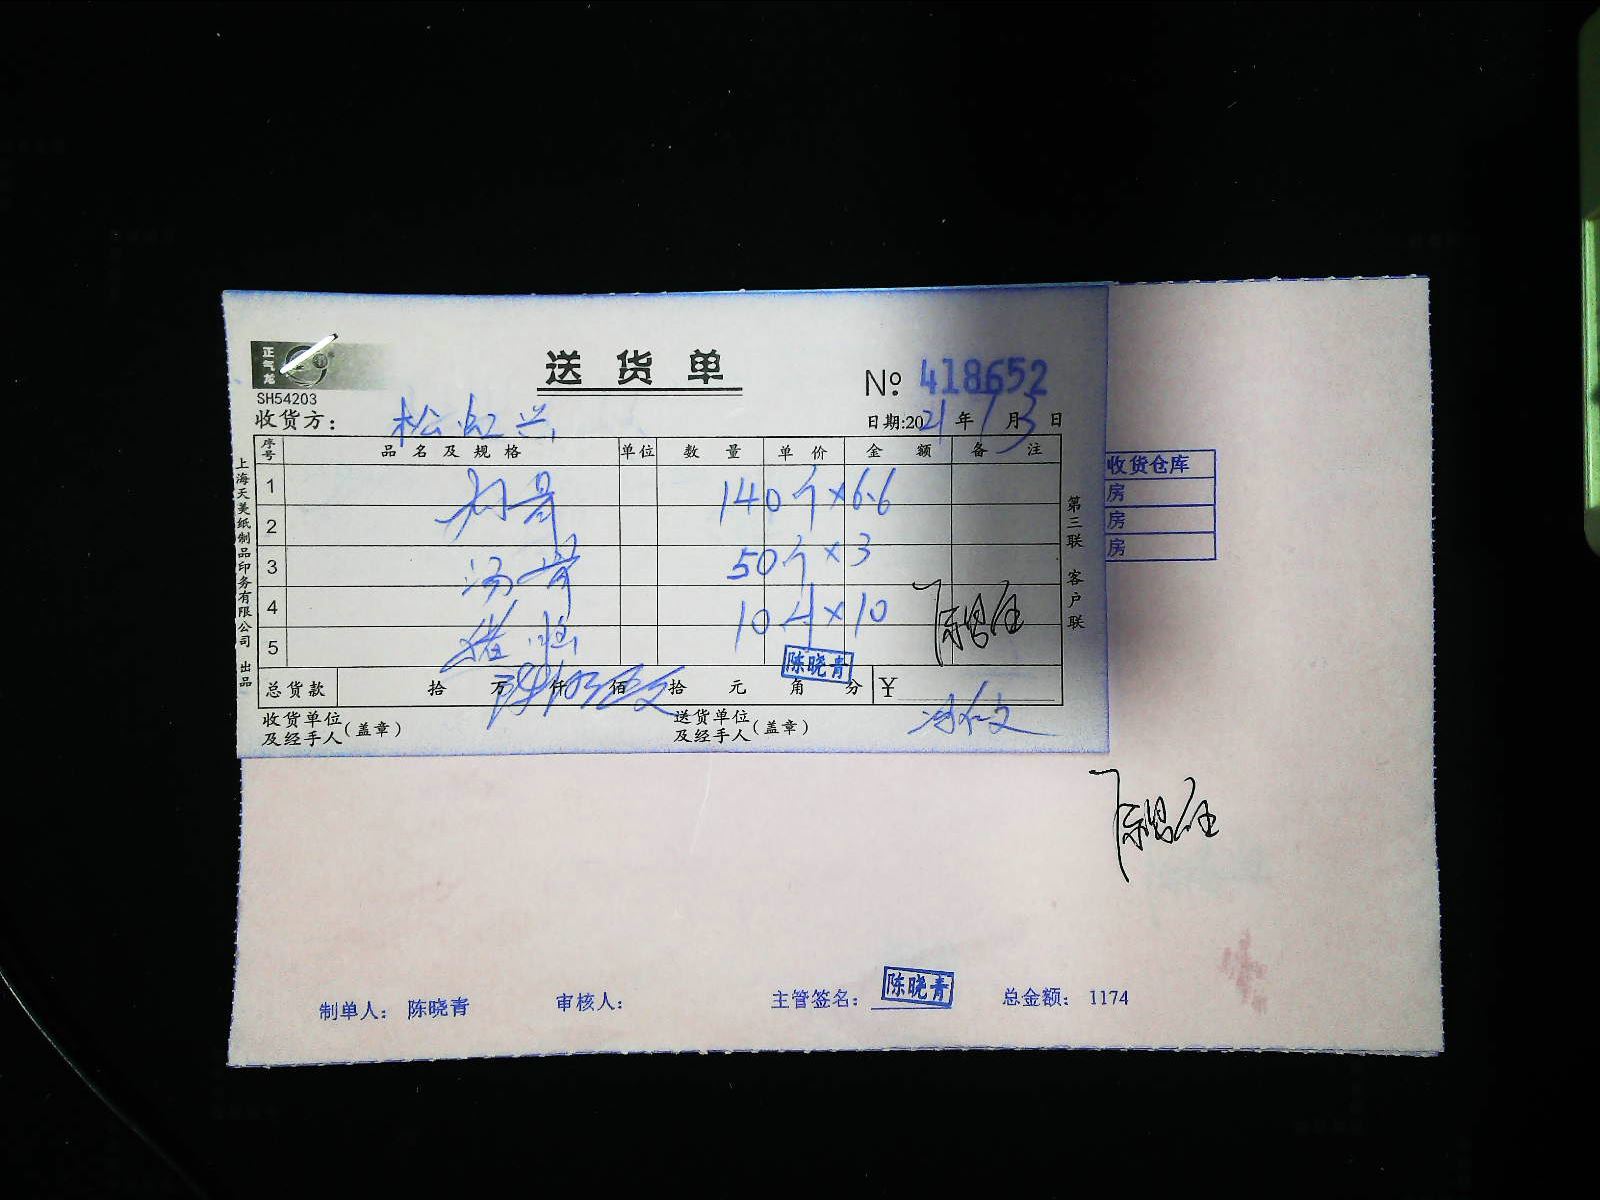 正气龙
SH54203
送货单
№ 418652
收货方: 松虹兴
日期:2021年1月3日
序号 品名及规格 单位 数量 单价 金额 备注
1 140个×6.6
2
3 50个×3
4
5 10个×10
总货款 拾 万 仟 佰 拾 元 角 分 ¥
陈晓青
收货单位及经手人(盖章)
送货单位及经手人(盖章)
上海天美纸制品印务有限公司 出品
第三联 客户联
收货仓库
房
房
房
制单人: 陈晓青 审核人: 主管签名: 陈晓青 总金额: 1174